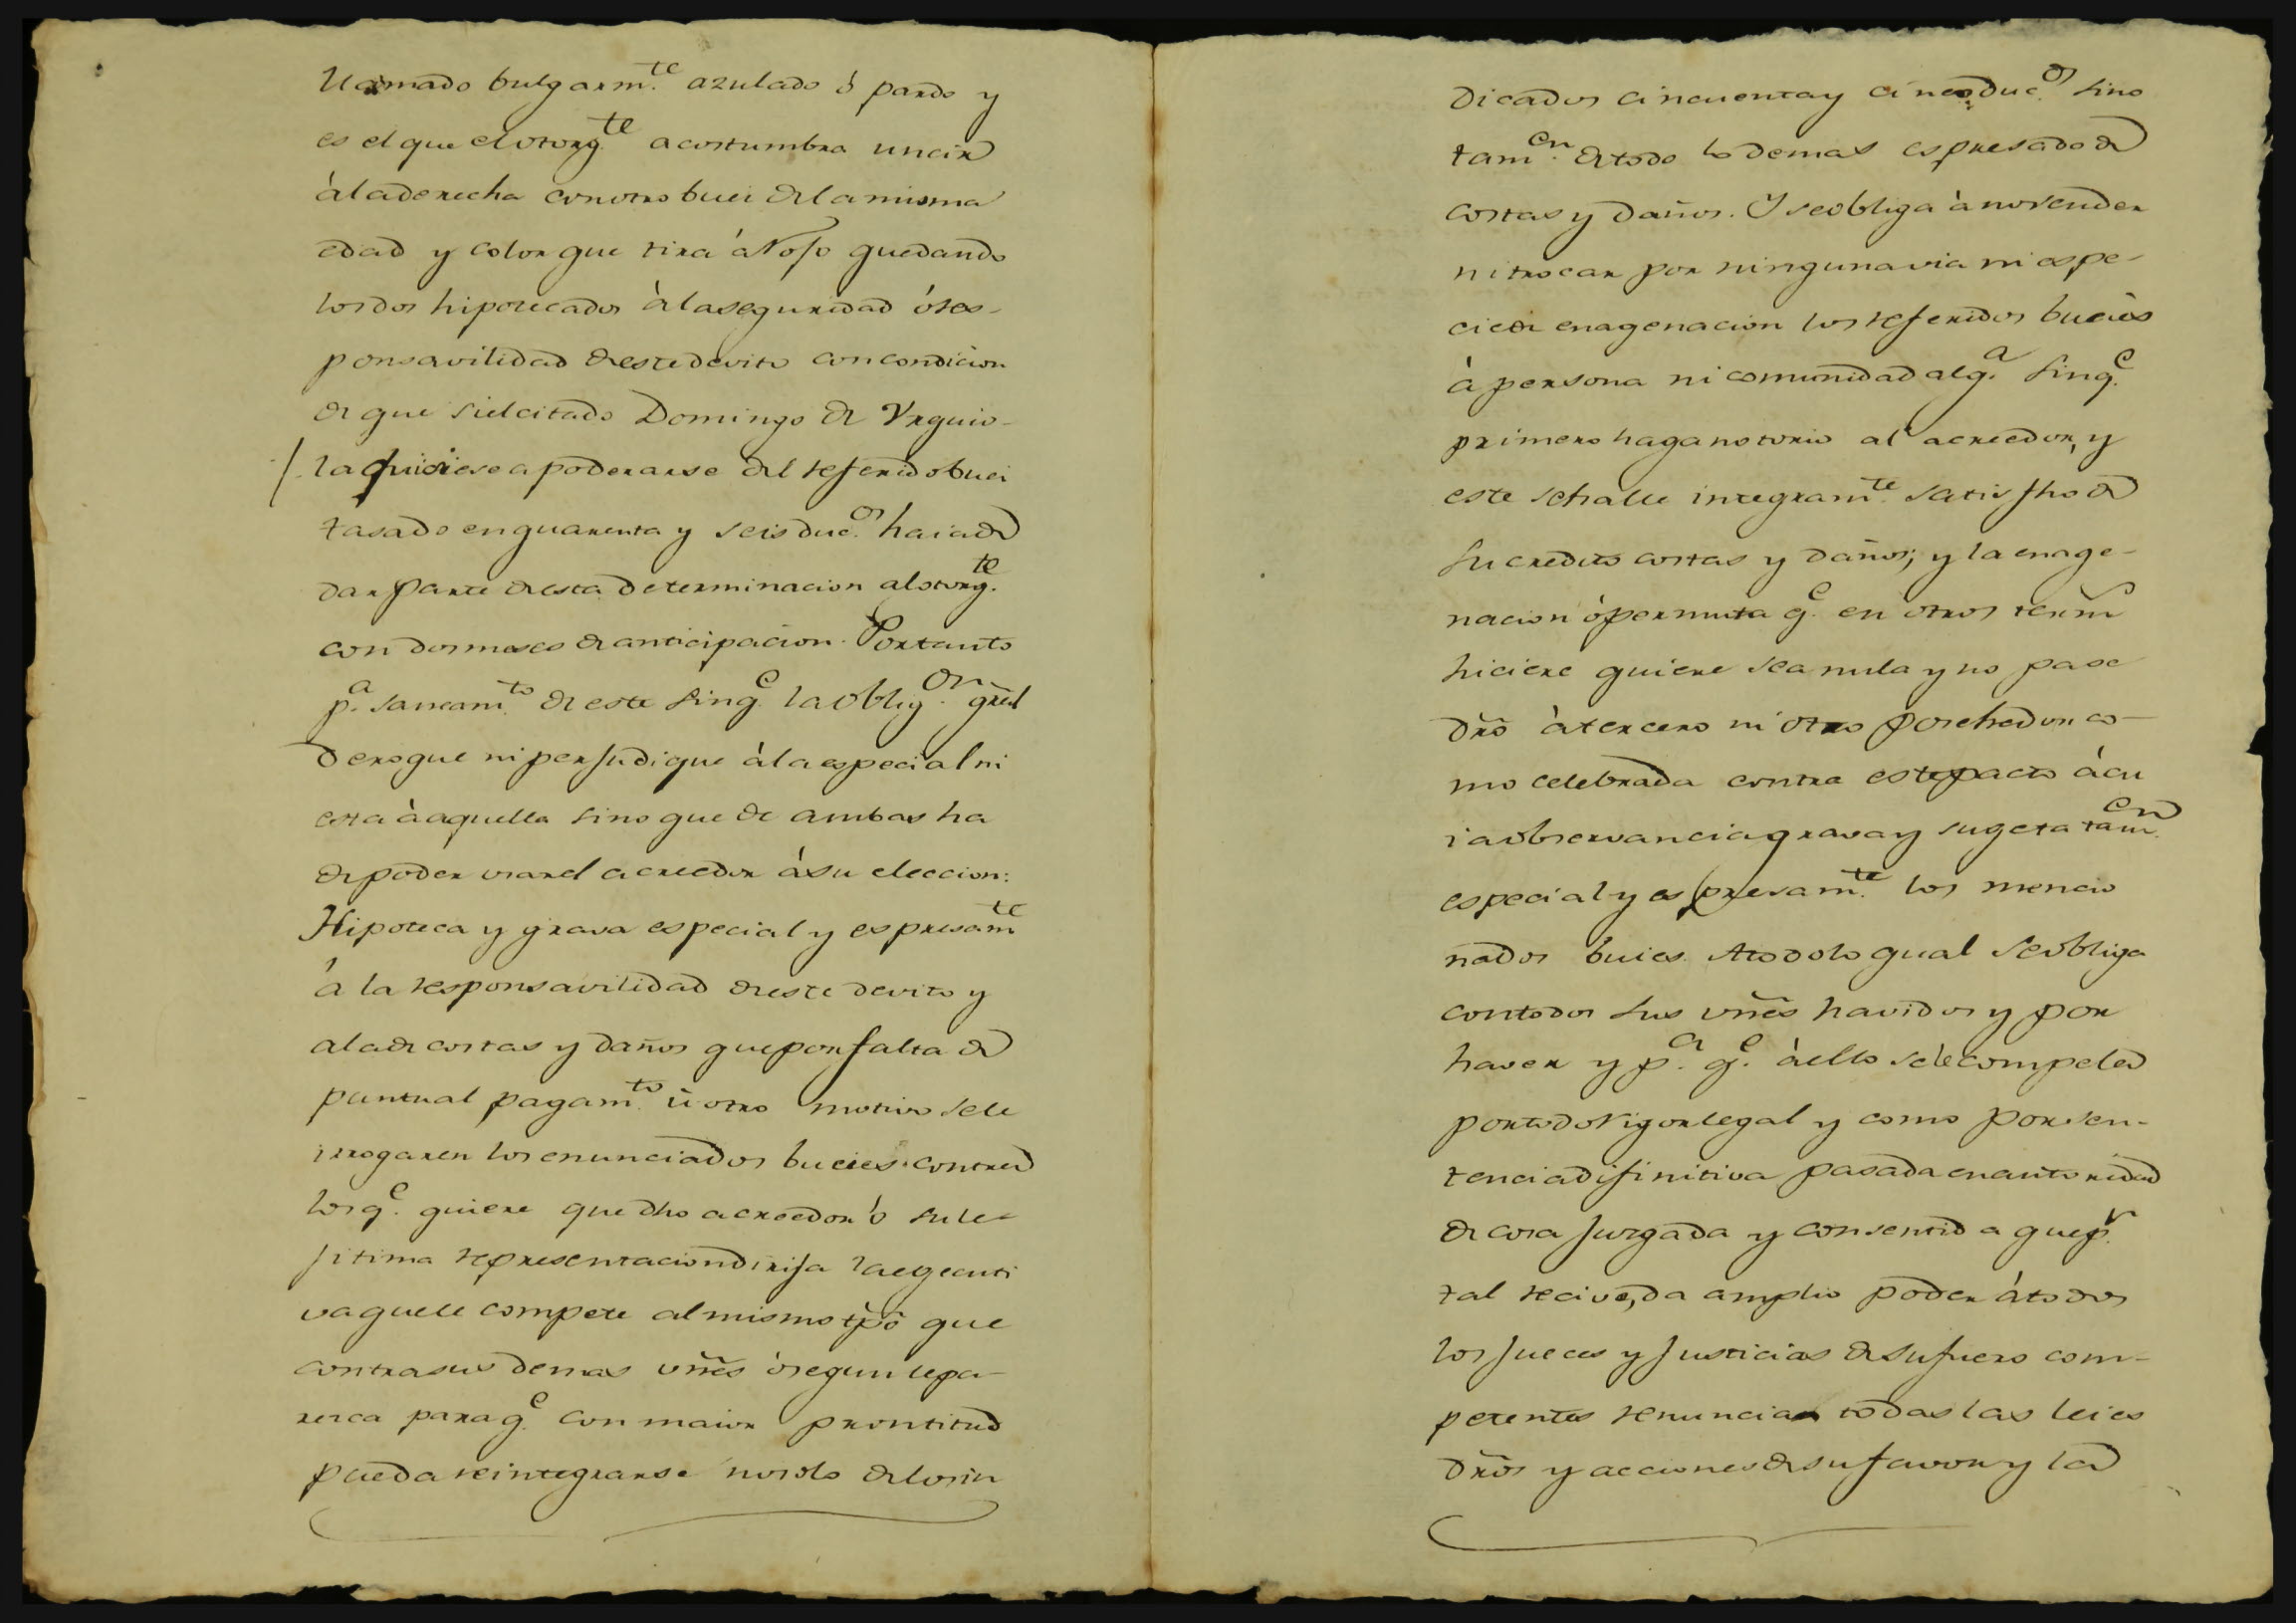 llamado bulgarm.te azulado ó pardo y
es el que el otorg.te acostumbra uncir
à la derecha con otro buei de la misma
edad y color que tira á Roſo quedando
los dos hipotecados à la seguridad ó res-
ponsavilidad de este devito con condicion
de que si el citado Domingo de Vrquio-
la quisiese apoderarse del referido buei
tasado en quarenta y seis duc.os haia de
dar parte de esta determinacion al otorg.te
con dos meses de anticipacion. Por tanto
p.a saneam.to de este sin q.e la oblig.on gr̃al
derogue ni perjudique à la especial ni
esta à aquella sino que de ambas ha
de poder usar el acreedor á su eleccion:
Hipoteca y grava especial y espresam.te
á la responsavilidad de este devito y
a la de costas y daños que por falta de
puntual pagam.to ù otro motivo se le
irrogaren los enunciados bueies contra
los q.e quiere que dho acreedor ó su le-
jitima representacion dirija la egecuti
va que le compete al mismo tp̃o que
contra sus demas vñes ò segun le pa-
rezca para q.e con maior prontitud
pueda reintegrarse no solo de los in
dicados cincuenta y cinco duc.os sino
tam.en de todo lo demas espresado de
costas y daños. Y se obliga à no vender
ni trocar por ninguna via ni espe-
cie de enagenacion los referidos bueies
à persona ni comunidad alg.a sin q.e
primero haga notorio al acreedor, y
este se halle integram.te satisfho de
su credito costas y daños; y la enage-
nacion ó permuta q.e en otros term̃
hiciere quiere sea nula y no pase
dr̃o à tercero ni otro posehedor co-
mo celebrada contra este pacto á cu
ia observancia grava y sugeta tam.en
especial y espresam.te los mencio
nados buies. A todo lo qual se obliga
con todos sus vñes havidos y por
haver y p.a q.e à ello se le compela
por todo Rigor legal y como por sen-
tencia difinitiva pasada en autoridad
de cosa juzgada y consentida que p.r
tal recive, da amplio poder á todos
los jueces y justicias de su fuero com-
petentes renuncia todas las leies
dr̃os y acciones de su favor y la